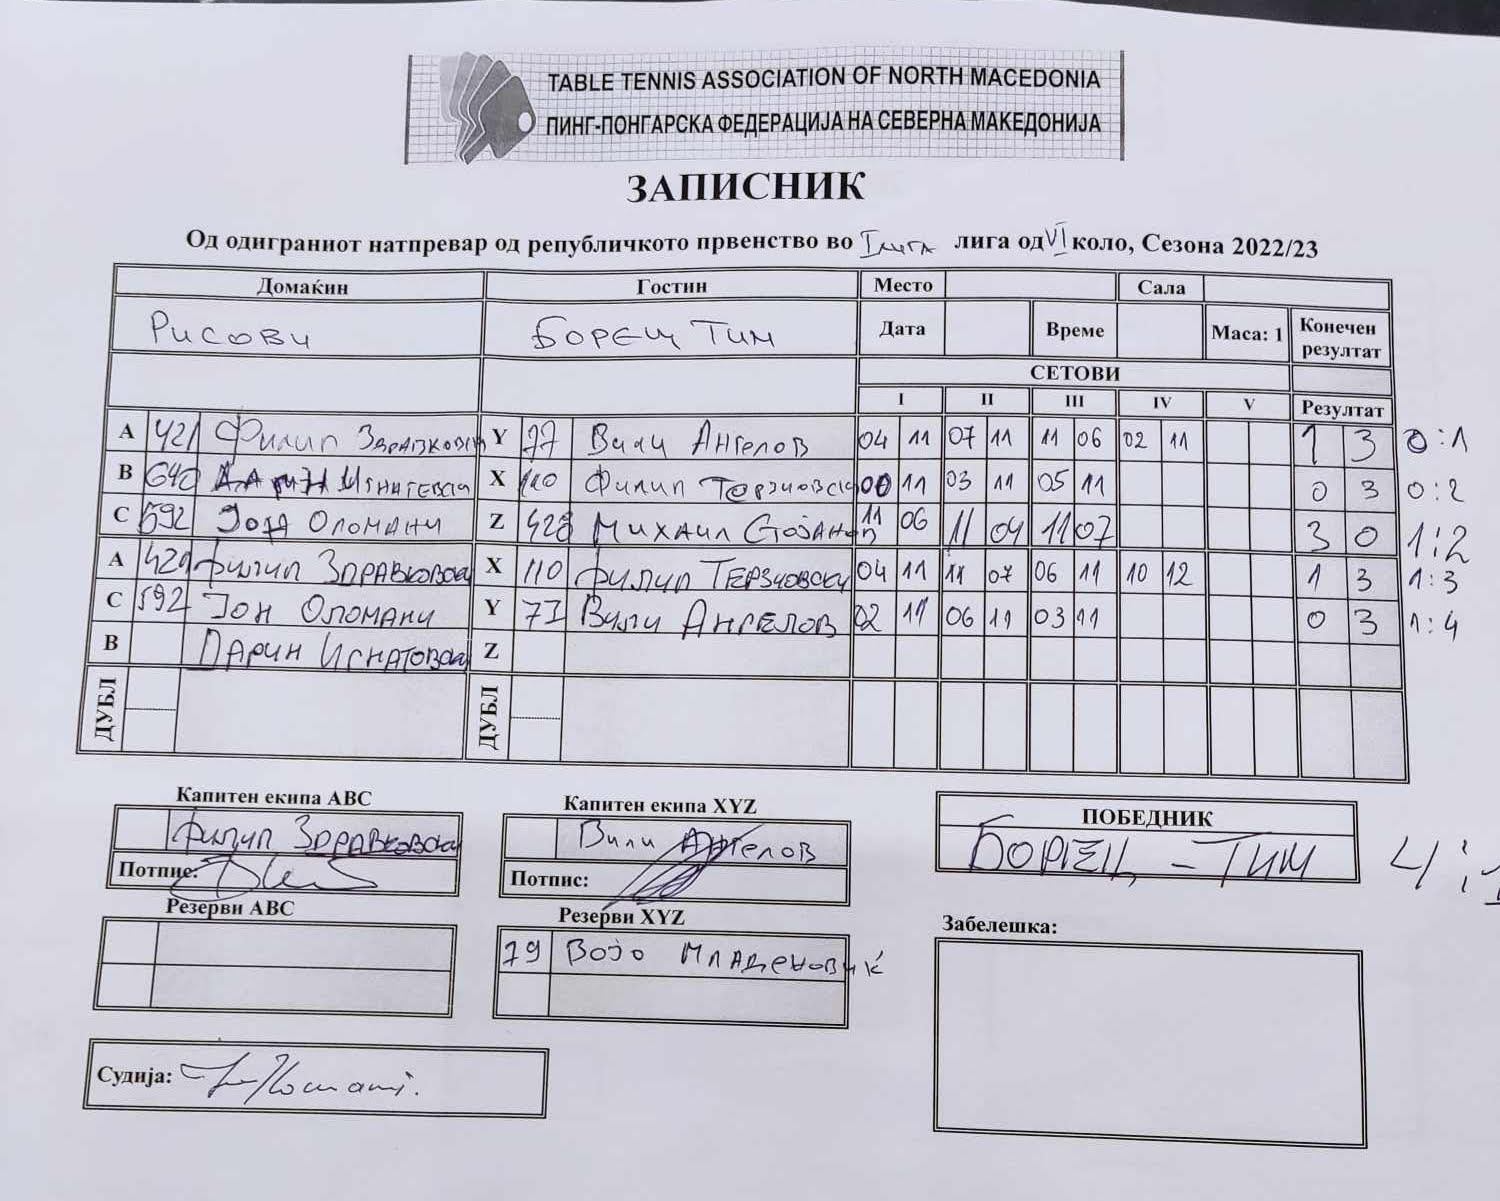 TABLE TENNIS ASSOCIATION OF NORTH MACEDONIA
ПИНГ-ПОНГАРСКА ФЕДЕРАЦИЈА НА СЕВЕРНА МАКЕДОНИЈА
ЗАПИСНИК
Од одиграниот натпревар од републичкото првенство во I лига лига од VI коло, Сезона 2022/23
Домаќин Гостин Место Сала
Рисови Борец Тим Дата Време Маса: 1 Конечен резултат
СЕТОВИ
I II III IV V Резултат
A 421 Филип Здравковски Y 77 Вили Ангелов 04 11 07 11 11 06 02 11 1 3 0:1
B 640 X 110 Филип Терзиовски 00 11 03 11 05 11 0 3 0:2
C 592 Јон Оломани Z 428 Михаил Стојанов 11 06 11 04 11 07 3 0 1:2
A 421 Филип Здравковски X 110 Филип Терзиовски 04 11 11 07 06 11 10 12 1 3 1:3
C 592 Јон Оломани Y 77 Вили Ангелов 02 11 06 11 03 11 0 3 1:4
B Дарин Игнатовски Z
ДУБЛ ДУБЛ
Капитен екипа ABC Капитен екипа XYZ
Филип Здравковски Вили Ангелов
ПОБЕДНИК
Борец - Тим 4:1
Потпис: Потпис:
Резерви ABC Резерви XYZ
79 Војо Младеновиќ
Забелешка:
Судија: